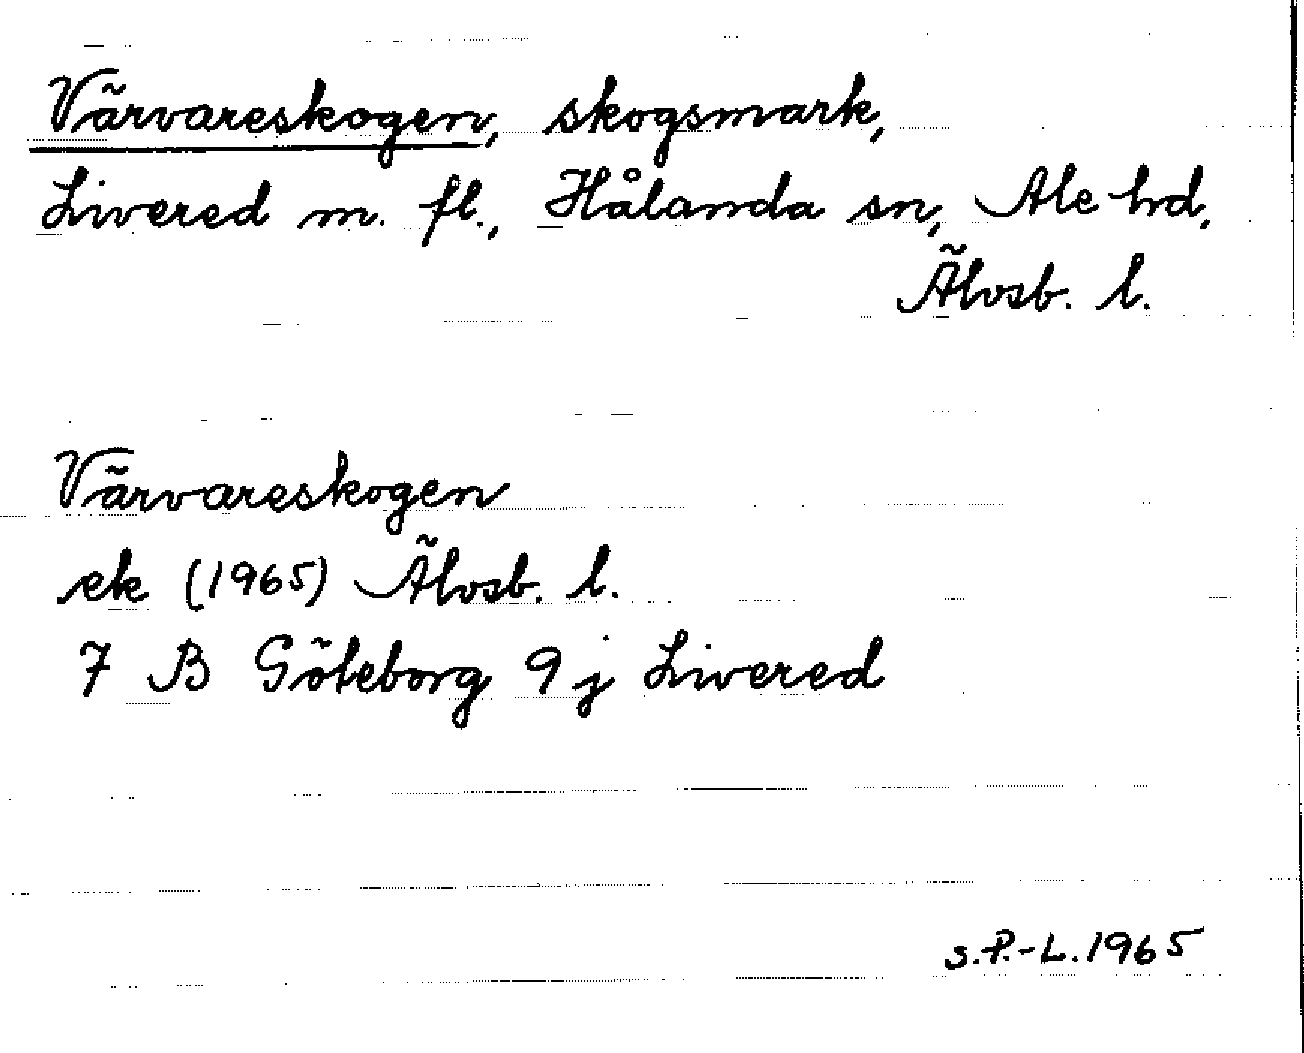 Värvareskogen, skogsmark,
Livered m. fl., Hålanda sn, Ale hd,
Älvsb. l.
Värvareskogen
ek (1965) Älvsb. l.
7 B Göteborg 9 j Livered
S.P.-L. 1965